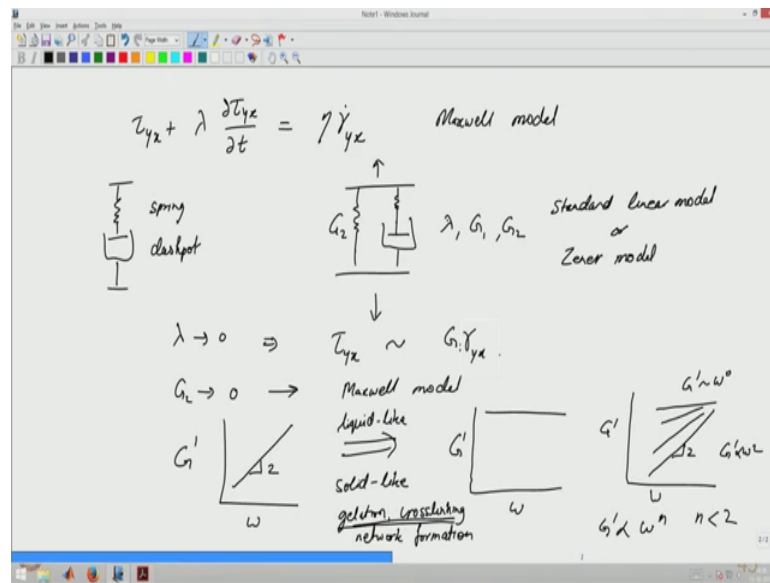 Note1 - Windows Journal
File Edit View Insert Actions Tools Help
Page Width
τyx + λ ∂τyx/∂t = η γ̇yx Maxwell model
spring
dashpot
G2 λ, G1, G2 Standard linear model
or
Zener model
λ → 0 ⇒ τyx ~ G. γyx.
G2 → 0 → Maxwell model
G' 2 ω
liquid-like
⇒
solid-like
gelation, crosslinking
network formation
G' ω
G' ω G'~ω⁰ 2 G'∝ω2
G'∝ ωⁿ n<2
2/2